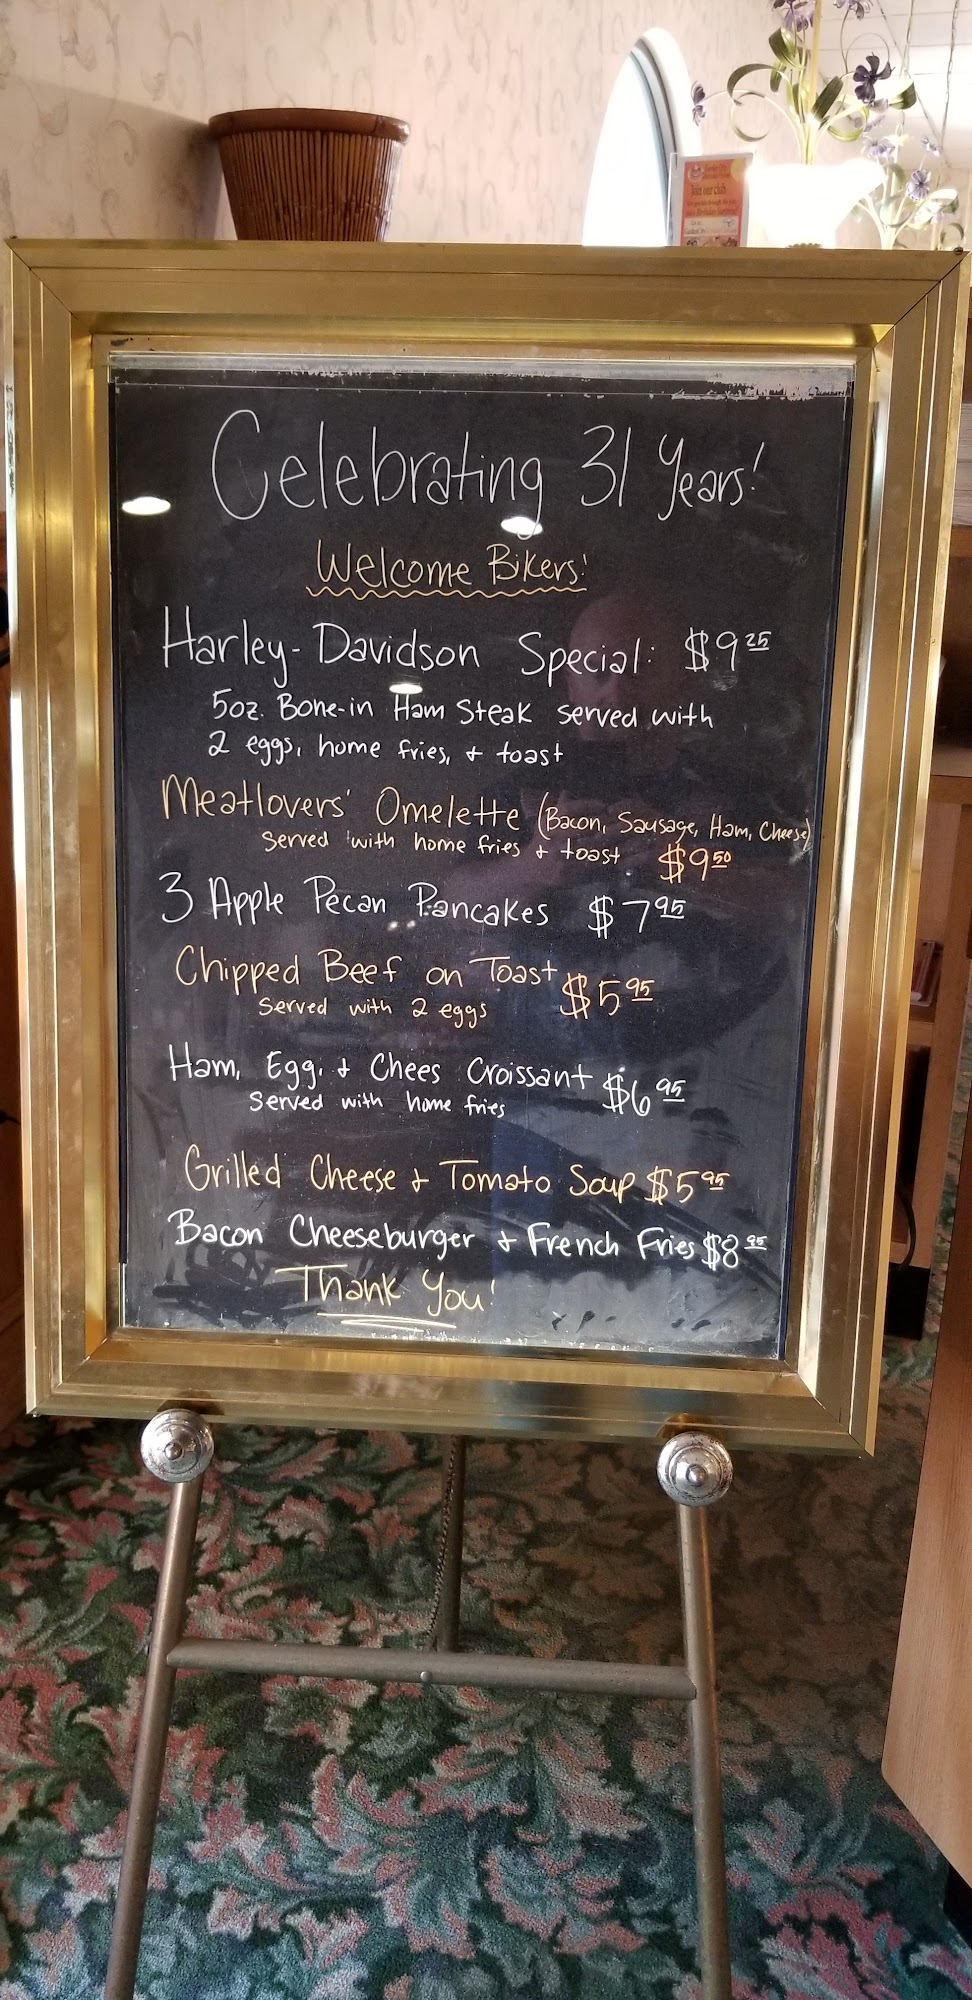 Join our club
Celebrating 31 Years!
Welcome Bikers!
Harley-Davidson Special: $9 25
5oz. Bone-in Ham Steak served with
2 eggs, home fries, + toast
Meatlovers' Omelette (Bacon, Sausage, Ham, Cheese)
Served with home fries + toast $9 50
3 Apple Pecan Pancakes $7 95
Chipped Beef on Toast $5 95
Served with 2 eggs
Ham, Egg, + Chees Croissant $6 95
Served with home fries
Grilled Cheese + Tomato Soup $5 95
Bacon Cheeseburger + French Fries $8 95
Thank You!